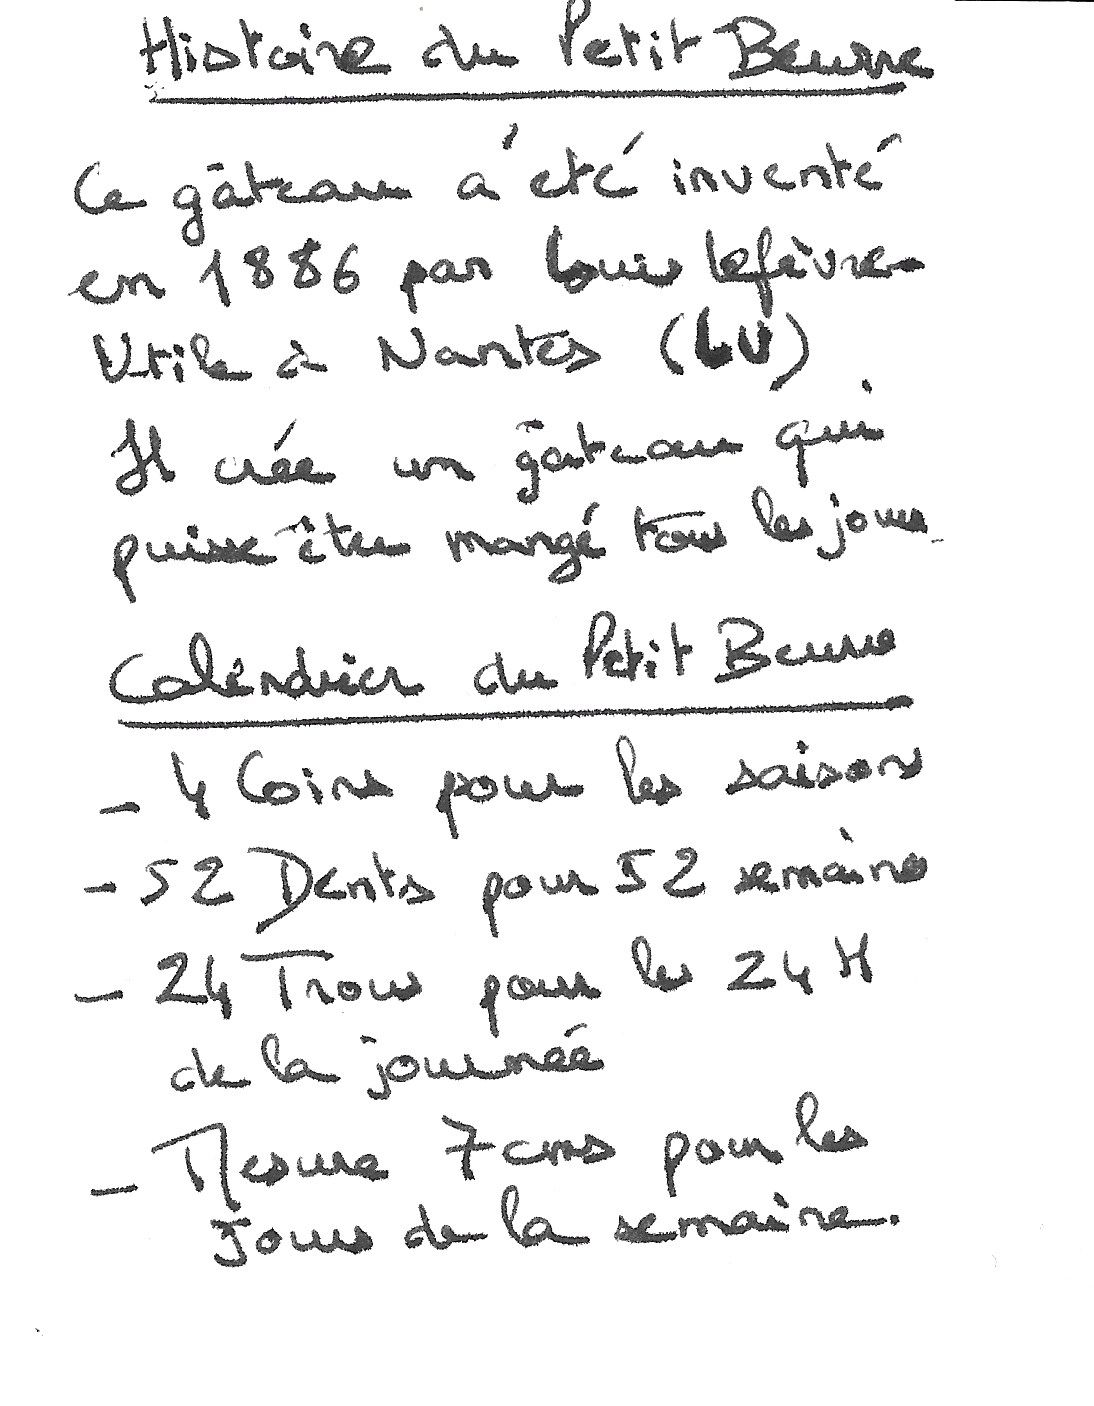 Histoire du Petit Beurre
Ce gâteau a été inventé
en 1886 par Louis Lefèvre-
Utile à Nantes (LU)
Il crée un gâteau qui
puisse être mangé tous les jours.
Calendrier du Petit Beurre
- 4 Coins pour les saisons
- 52 Dents pour 52 semaines
- 24 Trous pour les 24 H
de la journée
- Mesure 7 cms pour les
Jours de la semaine.